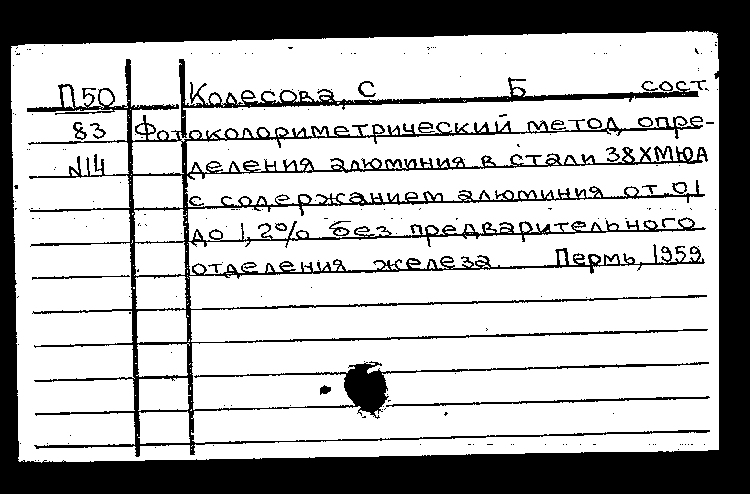 П50 Колесова, С Б , сост.
83 Фотоколориметрический метод опре-
N14 деления алюминия в стали 38ХМЮА
с содержанием алюминия от 0,1
до 1,2% без предварительного
отделения железа. Пермь, 1959.